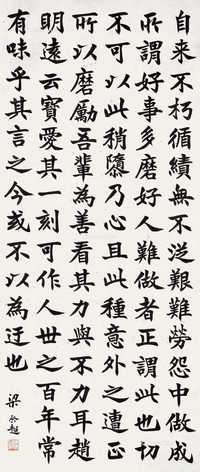 自来不朽循績無不從艱難勞怨中做成
所謂好事多磨好人難做者正謂此也切
不可以此稍隳乃心且此種意外之遭正
所以磨勵吾輩為善看其力與不力耳趙
明遠云寳愛其一刻可作人世之百年常
有味乎其言之今或不以為迂也
梁啟超